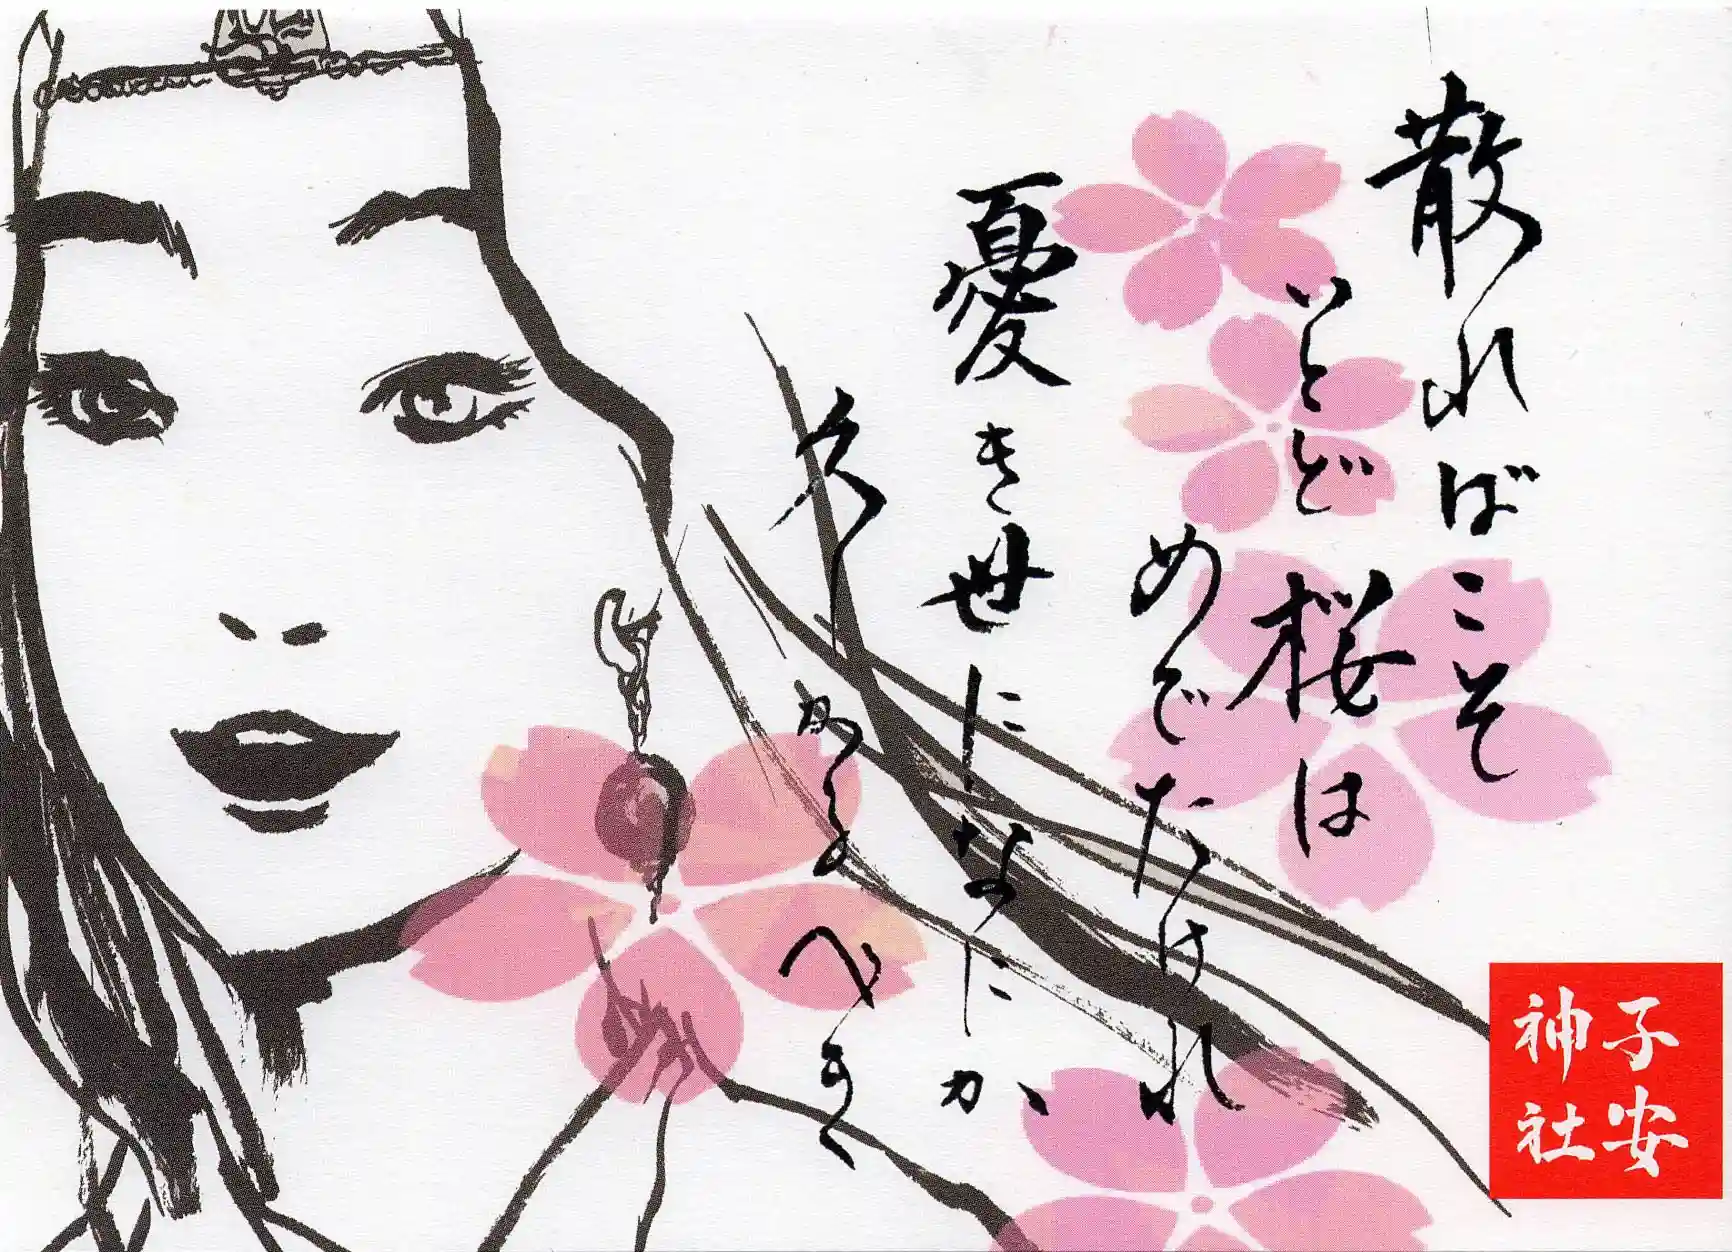 散ればこそ
いとど桜は
めでたけれ
憂き世になにか
久しかるべき
子安
神社